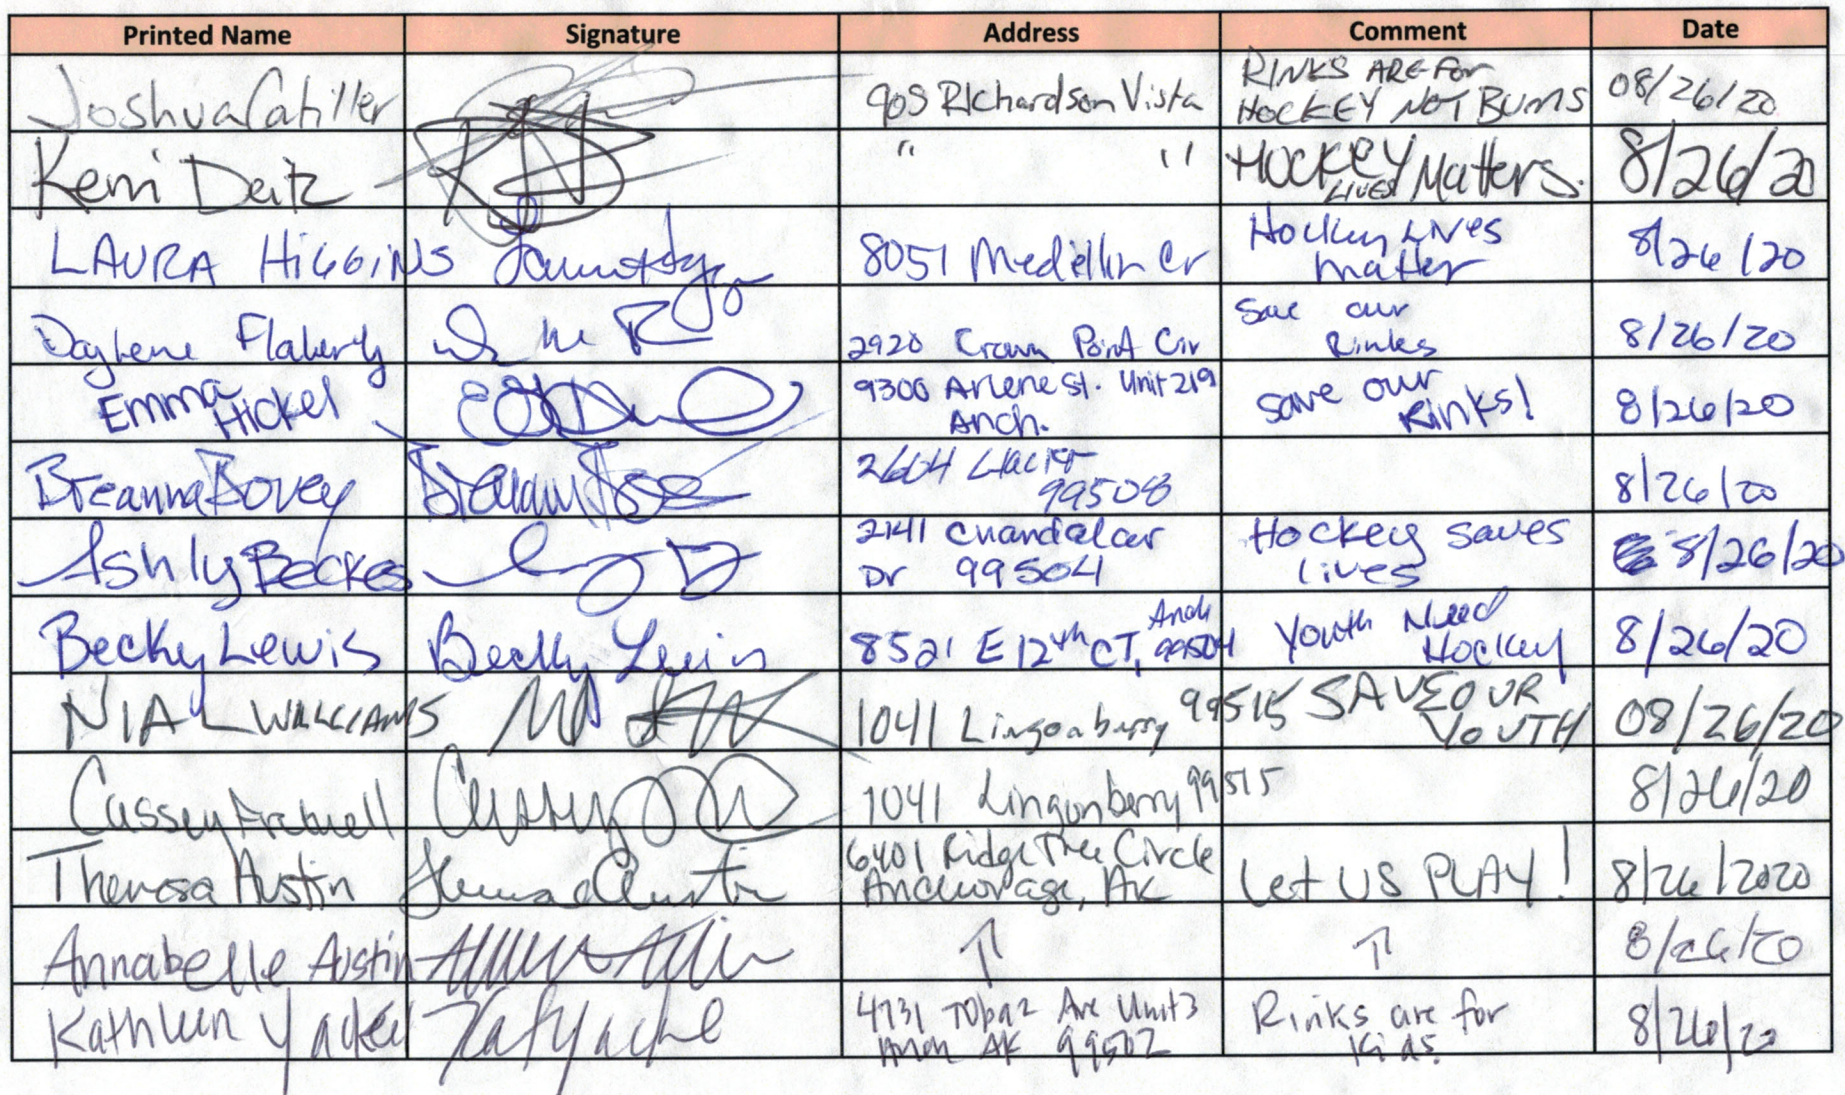 Printed Name Signature Address Comment Date
Joshua Catiller 905 Richardson Vista RINKS ARE FOR
HOCKEY NOT BUMS 08/26/20
Kerri Deitz " " HOCKEY LIVES Matters. 8/26/20
LAURA HIGGINS 8051 Medellin Cr Hockey Lives
matter 8/26/20
Daylene Flaherty 2920 Crown Point Cir Save our
Rinks 8/26/20
Emma
Hickel 9300 Arlene St. Unit 219
Anch. Save our
Rinks! 8/26/20
Breanna Bovey 2604 Glacier
99508 8/26/20
Ashly Beckes 2141 Chandalar
Dr 99504 Hockey saves
lives 8/26/20
Becky Lewis Becky Lewis 8521 E 12th CT, Anch
99504 Youth Need
Hockey 8/26/20
NIA L WILLIAMS 1041 Lingonberry 99515 SAVE OUR
YOUTH 08/26/20
Cassey Fretwell 1041 Lingonberry 99515 8/26/20
Theresa Austin Theresa Austin 6401 Ridge Tree Circle
Anchorage, AK Let US PLAY! 8/26/2020
Annabelle Austin ↑ ↑ 8/26/20
Kathleen Yackel Kat Yackel 4731 Ave Unit 3
Anch AK 99502 Rinks are for
kids. 8/26/20